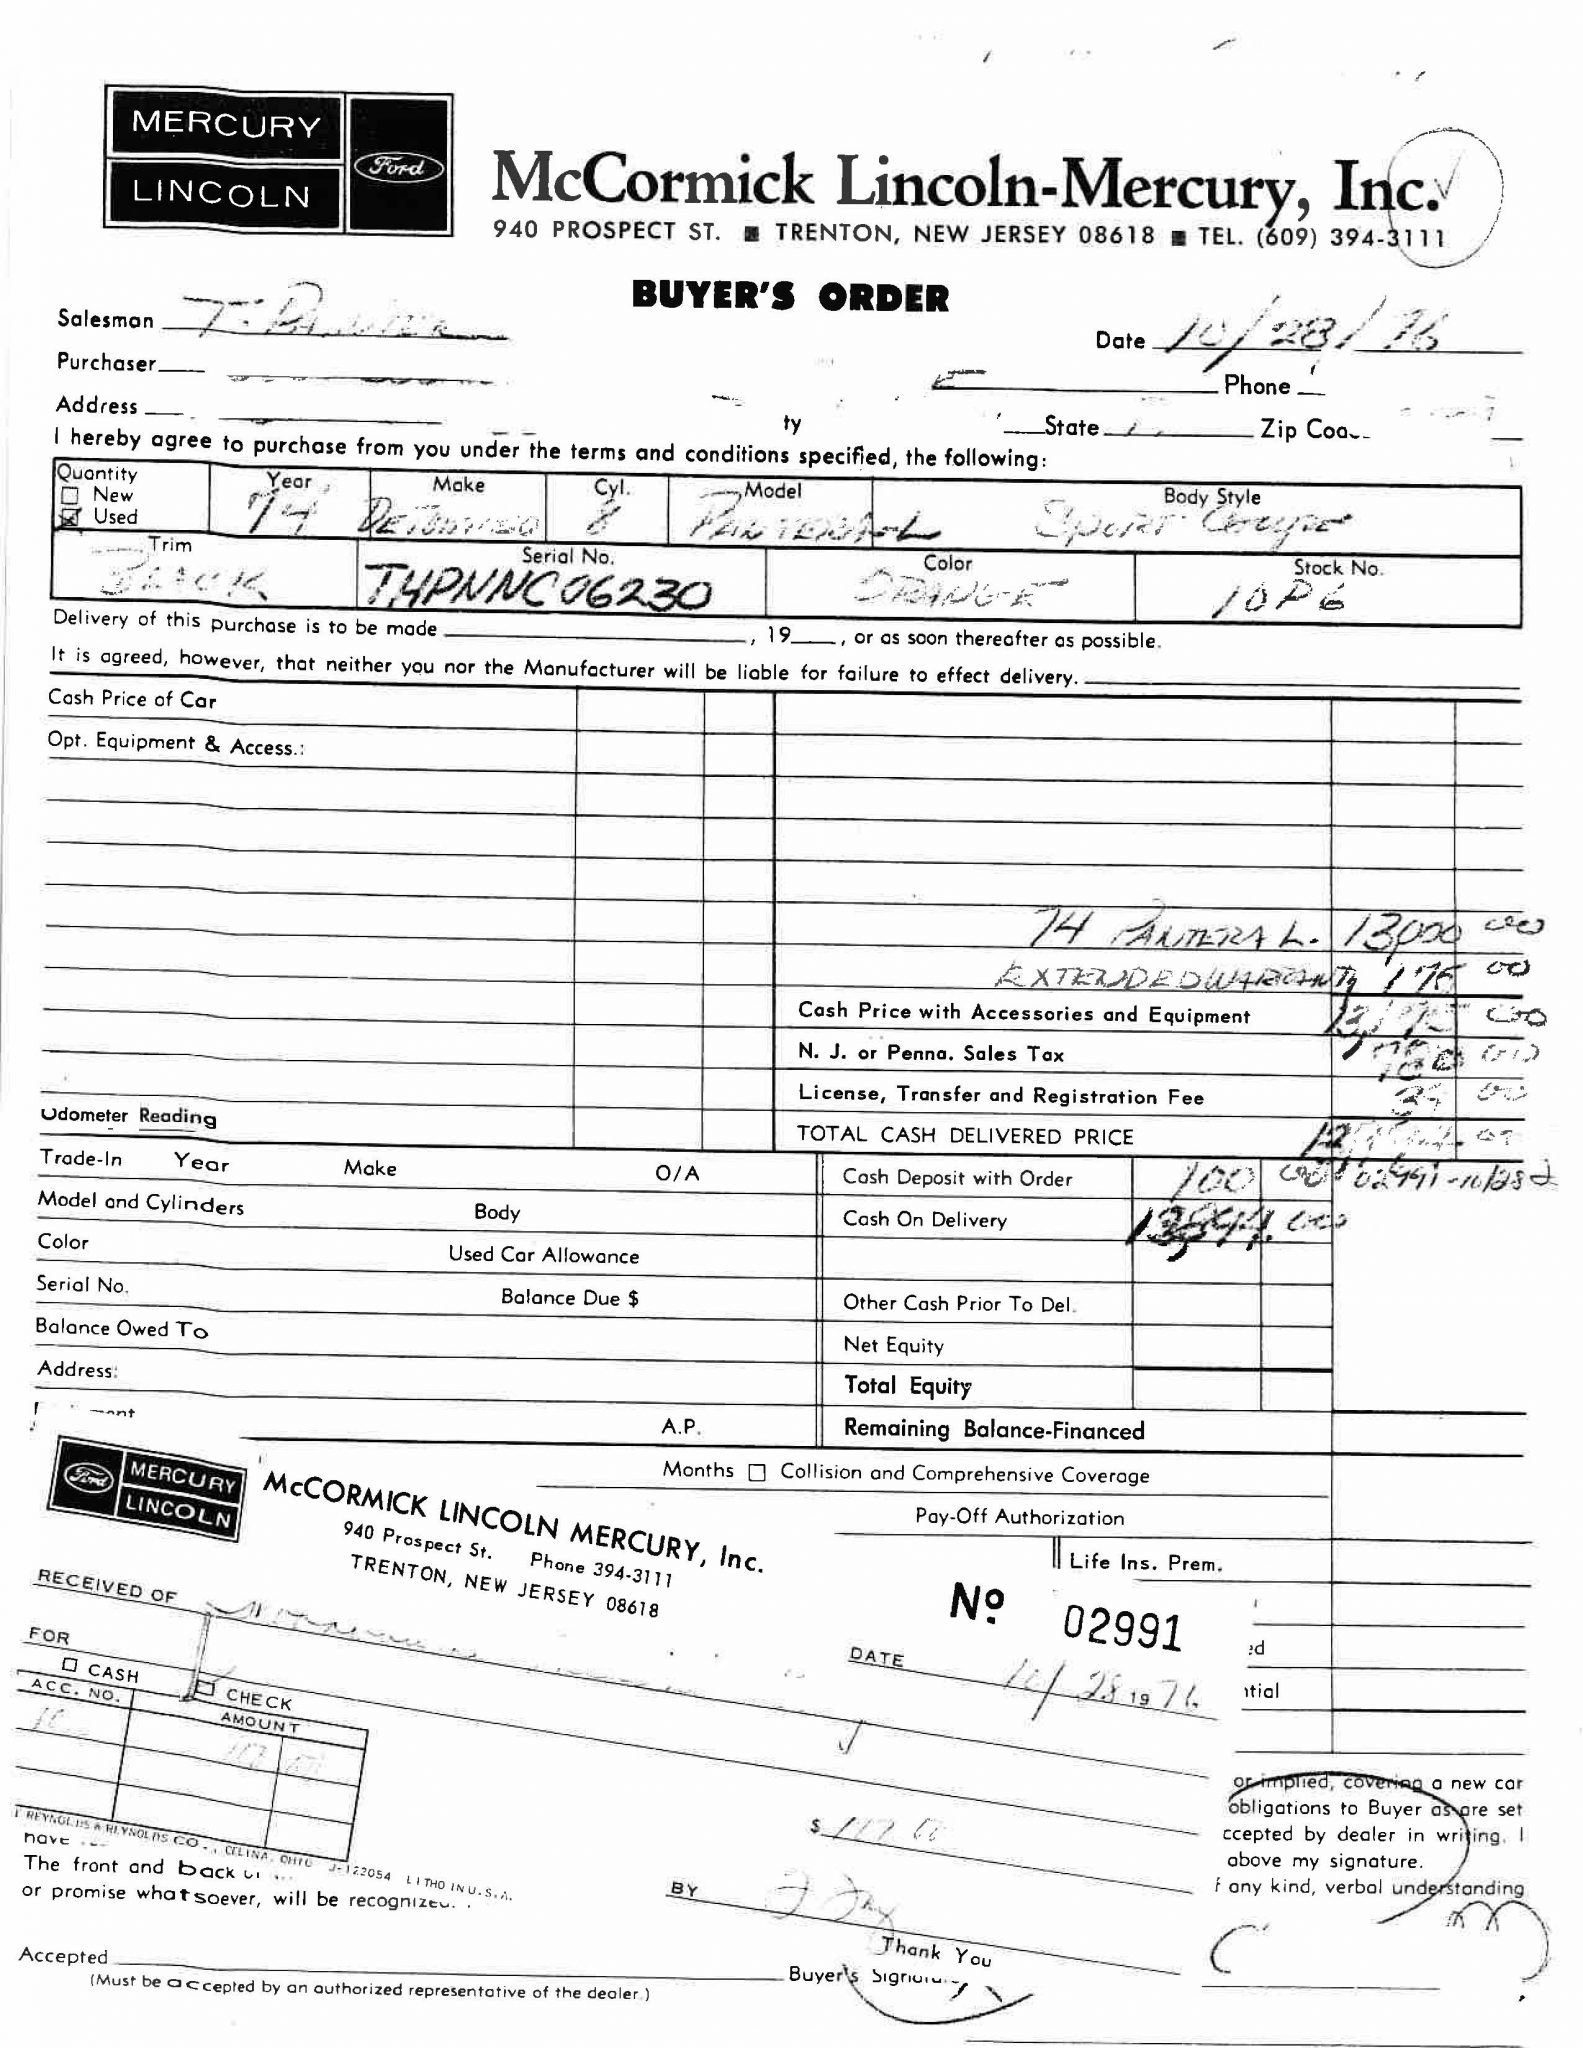 MERCURY
LINCOLN
Ford
McCormick Lincoln-Mercury, Inc.
940 PROSPECT ST. ■ TRENTON, NEW JERSEY 08618 ■ TEL. (609) 394-3111
BUYER'S ORDER
Salesman T.
Date 10/28/76
Purchaser
Phone
Address
ty State Zip
I hereby agree to purchase from you under the terms and conditions specified, the following:
Quantity Year Make Cyl. Model Body Style
New
Used 74 DETOMASO 8 PANTERA-L Sport Coupe
Trim Serial No. Color Stock No.
BLACK T4PNNC06230 ORANGE 10P6
Delivery of this purchase is to be made , 19 , or as soon thereafter as possible.
It is agreed, however, that neither you nor the Manufacturer will be liable for failure to effect delivery.
Cash Price of Car
Opt. Equipment & Access.:
74 PANTERA L. 13,000 00
EXTENDED WARRANTY 175 00
Cash Price with Accessories and Equipment 13,175 00
N. J. or Penna. Sales Tax 780 00
License, Transfer and Registration Fee 39 00
Odometer Reading
TOTAL CASH DELIVERED PRICE
Trade-In Year Make O/A
Cash Deposit with Order 100 00 02991-10/28
Model and Cylinders Body
Cash On Delivery 13,894.00
Color Used Car Allowance
Serial No. Balance Due $
Other Cash Prior To Del.
Balance Owed To
Net Equity
Address:
Total Equity
A.P. Remaining Balance-Financed
Months Collision and Comprehensive Coverage
Pay-Off Authorization
Life Ins. Prem.
Ford
MERCURY
LINCOLN
McCORMICK LINCOLN MERCURY, Inc.
940 Prospect St. Phone 394-3111
TRENTON, NEW JERSEY 08618
Nº 02991
RECEIVED OF
DATE 10/28 1976
FOR
CASH
CHECK
ACC. NO. AMOUNT
REYNOLDS & REYNOLDS CO., CELINA, OHIO J-122054 LITHO IN U.S.A.
$
BY
Thank You
or implied, covering a new car
obligations to Buyer as are set
ccepted by dealer in writing. I
above my signature.
f any kind, verbal understanding
have
The front and back
or promise whatsoever, will be
Accepted
(Must be accepted by an authorized representative of the dealer.)
Buyer's